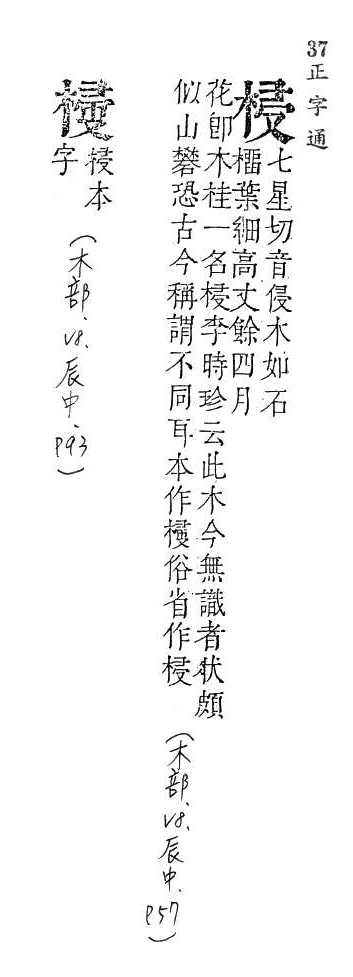 37 正字通
梫
七星切音侵木如石
橊葉細高丈餘四月
花卽木桂一名梫李時珍云此木今無識者狀頗
似山礬恐古今稱謂不同耳本作俗省作梫
(木部、v8、辰中、p57)
梫本
字
(木部、v8、辰中、p93)